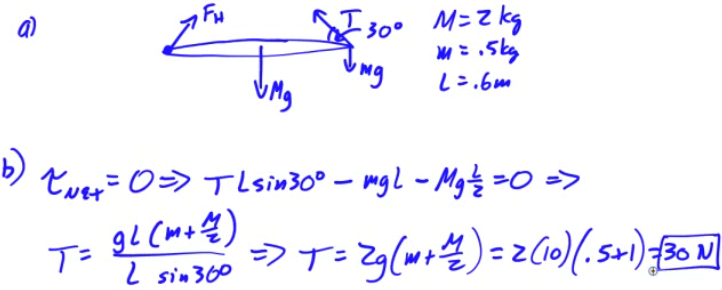 a) F_H T 30° M = 2 kg
m = .5kg
mg L = .6m
Mg
b) τ_Net = 0 => T L sin30° - mgL - Mg L/2 = 0 =>
T = gL(m+M/2) / L sin30° => T = 2g(m+M/2) = 2(10)(.5+1) = 30 N